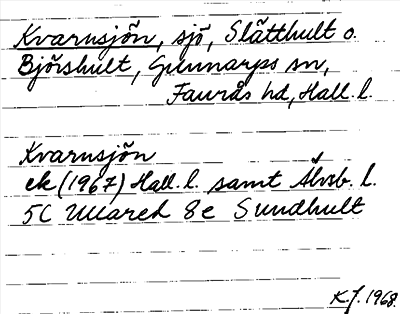 Kvarnsjön, sjö, Slätthult o.
Björshult, Gunnarps sn,
Faurås hd, Hall. l.
Kvarnsjön
ek (1967) Hall. l. samt Älvsb. l.
5C Ullared 8e Sundhult
K.J. 1968.